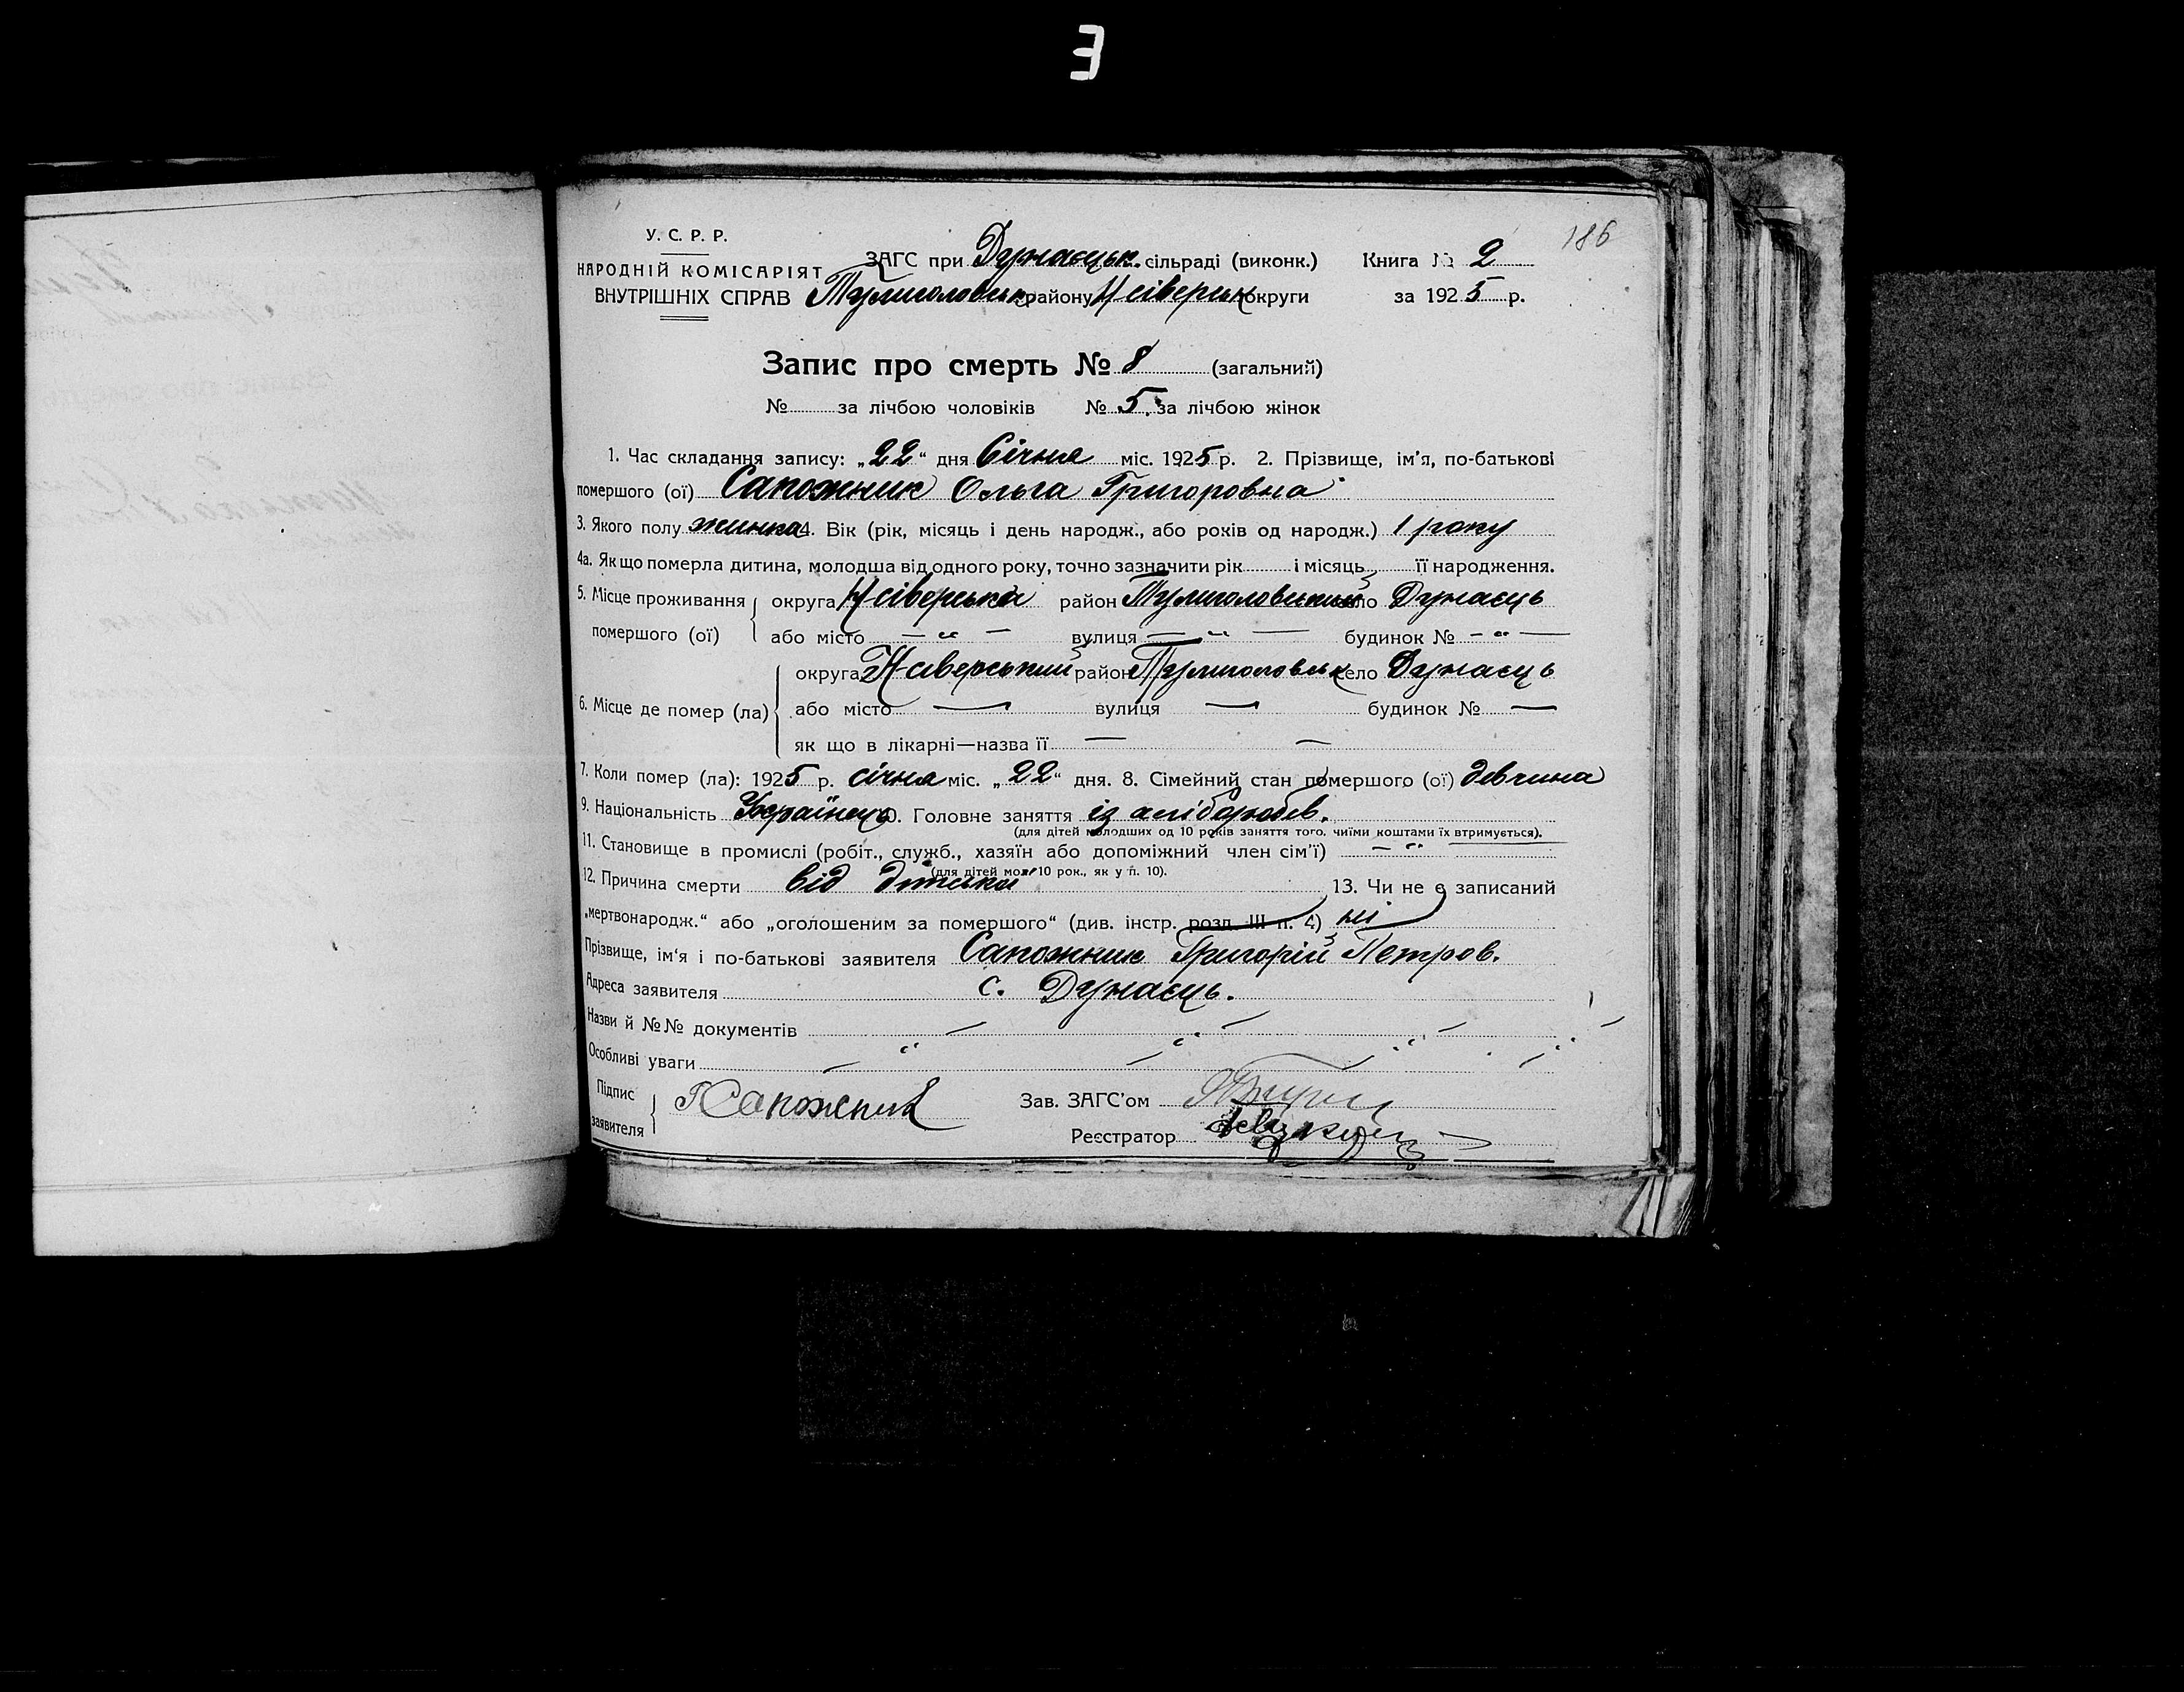 3
186
У. С. Р. Р.
НАРОДНІЙ КОМІСАРІЯТ
ВНУТРІШНІХ СПРАВ
ЗАГС при Дунаєцьк. сільраді (виконк.) Книга № 2
Тулиголовськ району Н сіверськ округи за 1925 р.
Запис про смерть № 8 (загальний)
№ за лічбою чоловіків № 5. за лічбою жінок
1. Час складання запису: „22“ дня Січня міс. 1925 р. 2. Прізвище, ім'я, по-батькові
помершого (ої) Сапожник Ольга Григоровна
3. Якого полу жинка 4. Вік (рік, місяць і день народж., або років од народж.) 1 року
4а. Як що померла дитина, молодша від одного року, точно зазначити рік і місяць її народження.
5. Місце проживання помершого (ої) округа Н сіверська район Тулиголовський село Дунаєць
або місто — " — вулиця — " — будинок № — " —
6. Місце де помер (ла) округа Н сіверський район Тулиголовськ село Дунаєць
або місто — вулиця — будинок № —
як що в лікарні—назва її — —
7. Коли помер (ла): 1925 р. січня міс. „22“ дня. 8. Сімейний стан помершого (ої) девчина
9. Національність Українець 10. Головне заняття із хліборобів.
(для дітей молодших од 10 років заняття того, чиїми коштами їх втримується).
11. Становище в промислі (робіт., служб., хазяїн або допоміжний член сім'ї) — " —
(для дітей мол. 10 рок., як у п. 10).
12. Причина смерти від 13. Чи не є записаний
„мертвонародж.“ або „оголошеним за помершого“ (див. інстр. розд. III п. 4) ні
Прізвище, ім'я і по-батькові заявителя Сапожник Григорій Петров.
Адреса заявителя с. Дунаєць.
Назви й №№ документів — " — " —
Особливі уваги — " — " — " —
Підпис заявителя Г Сапожник Зав. ЗАГС'ом
Реєстратор